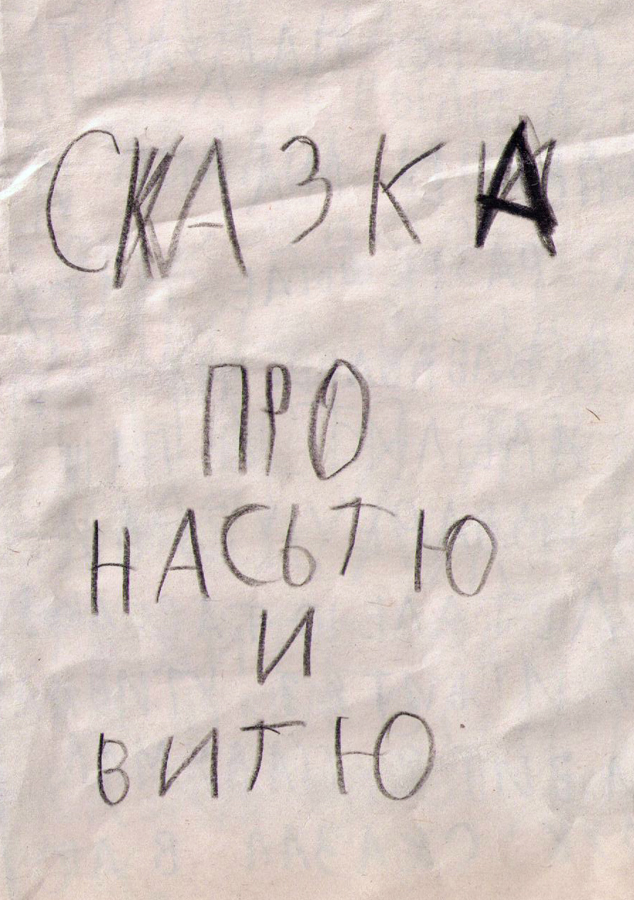 СКАЗКА
ПРО
НАСЬТЮ
И
ВИТЮ